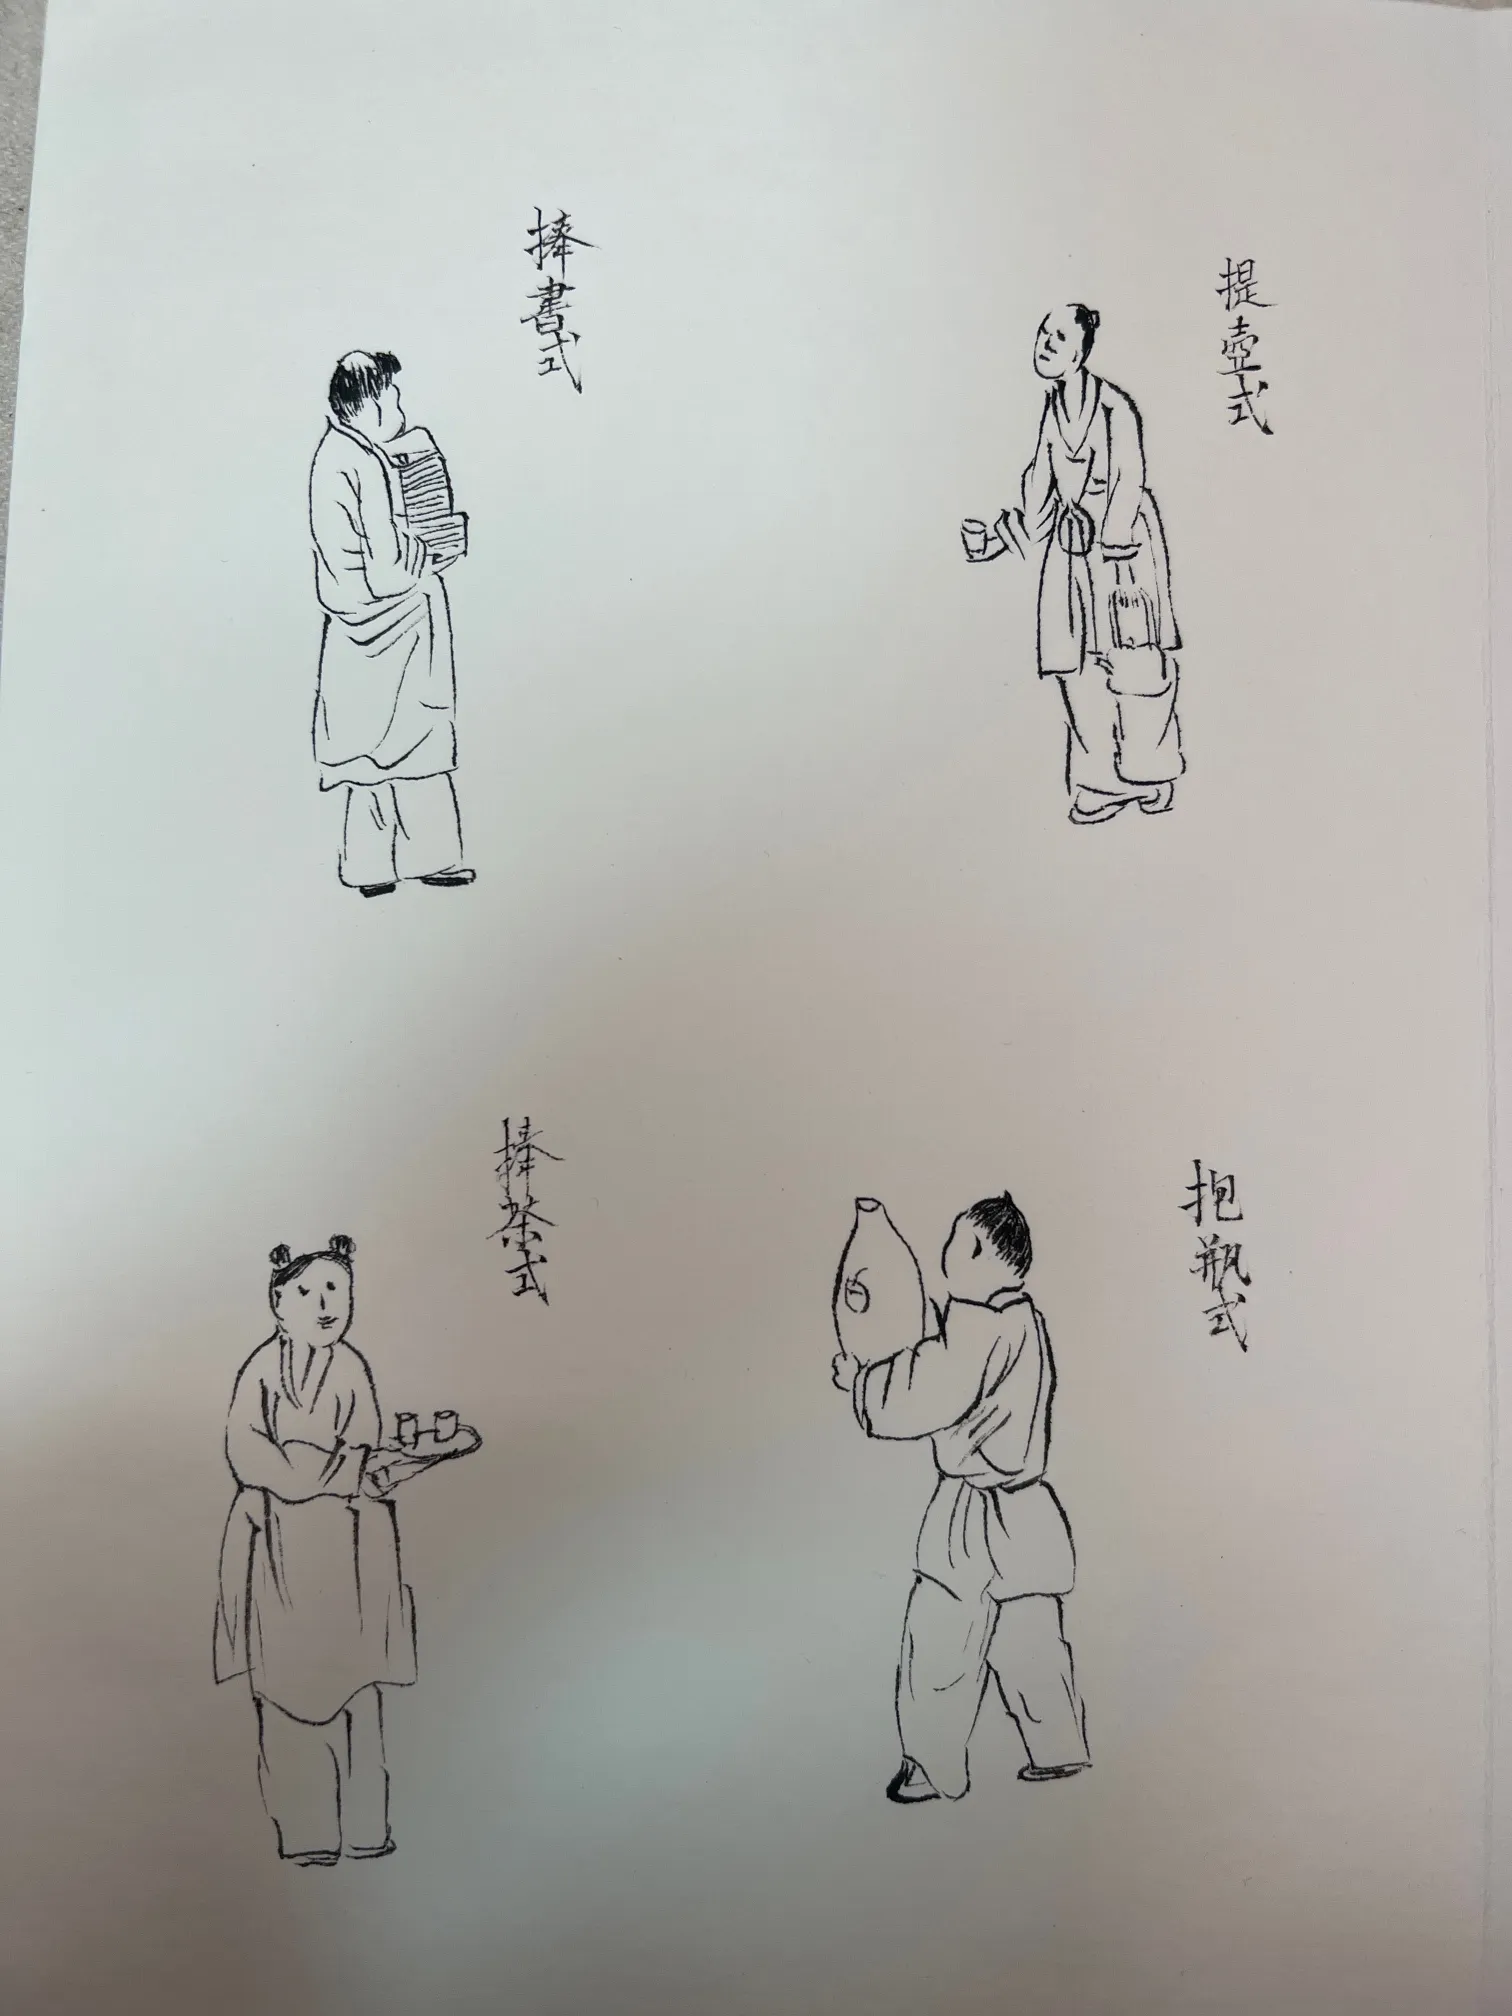 提壺式
捧書式
抱瓶式
捧茶式